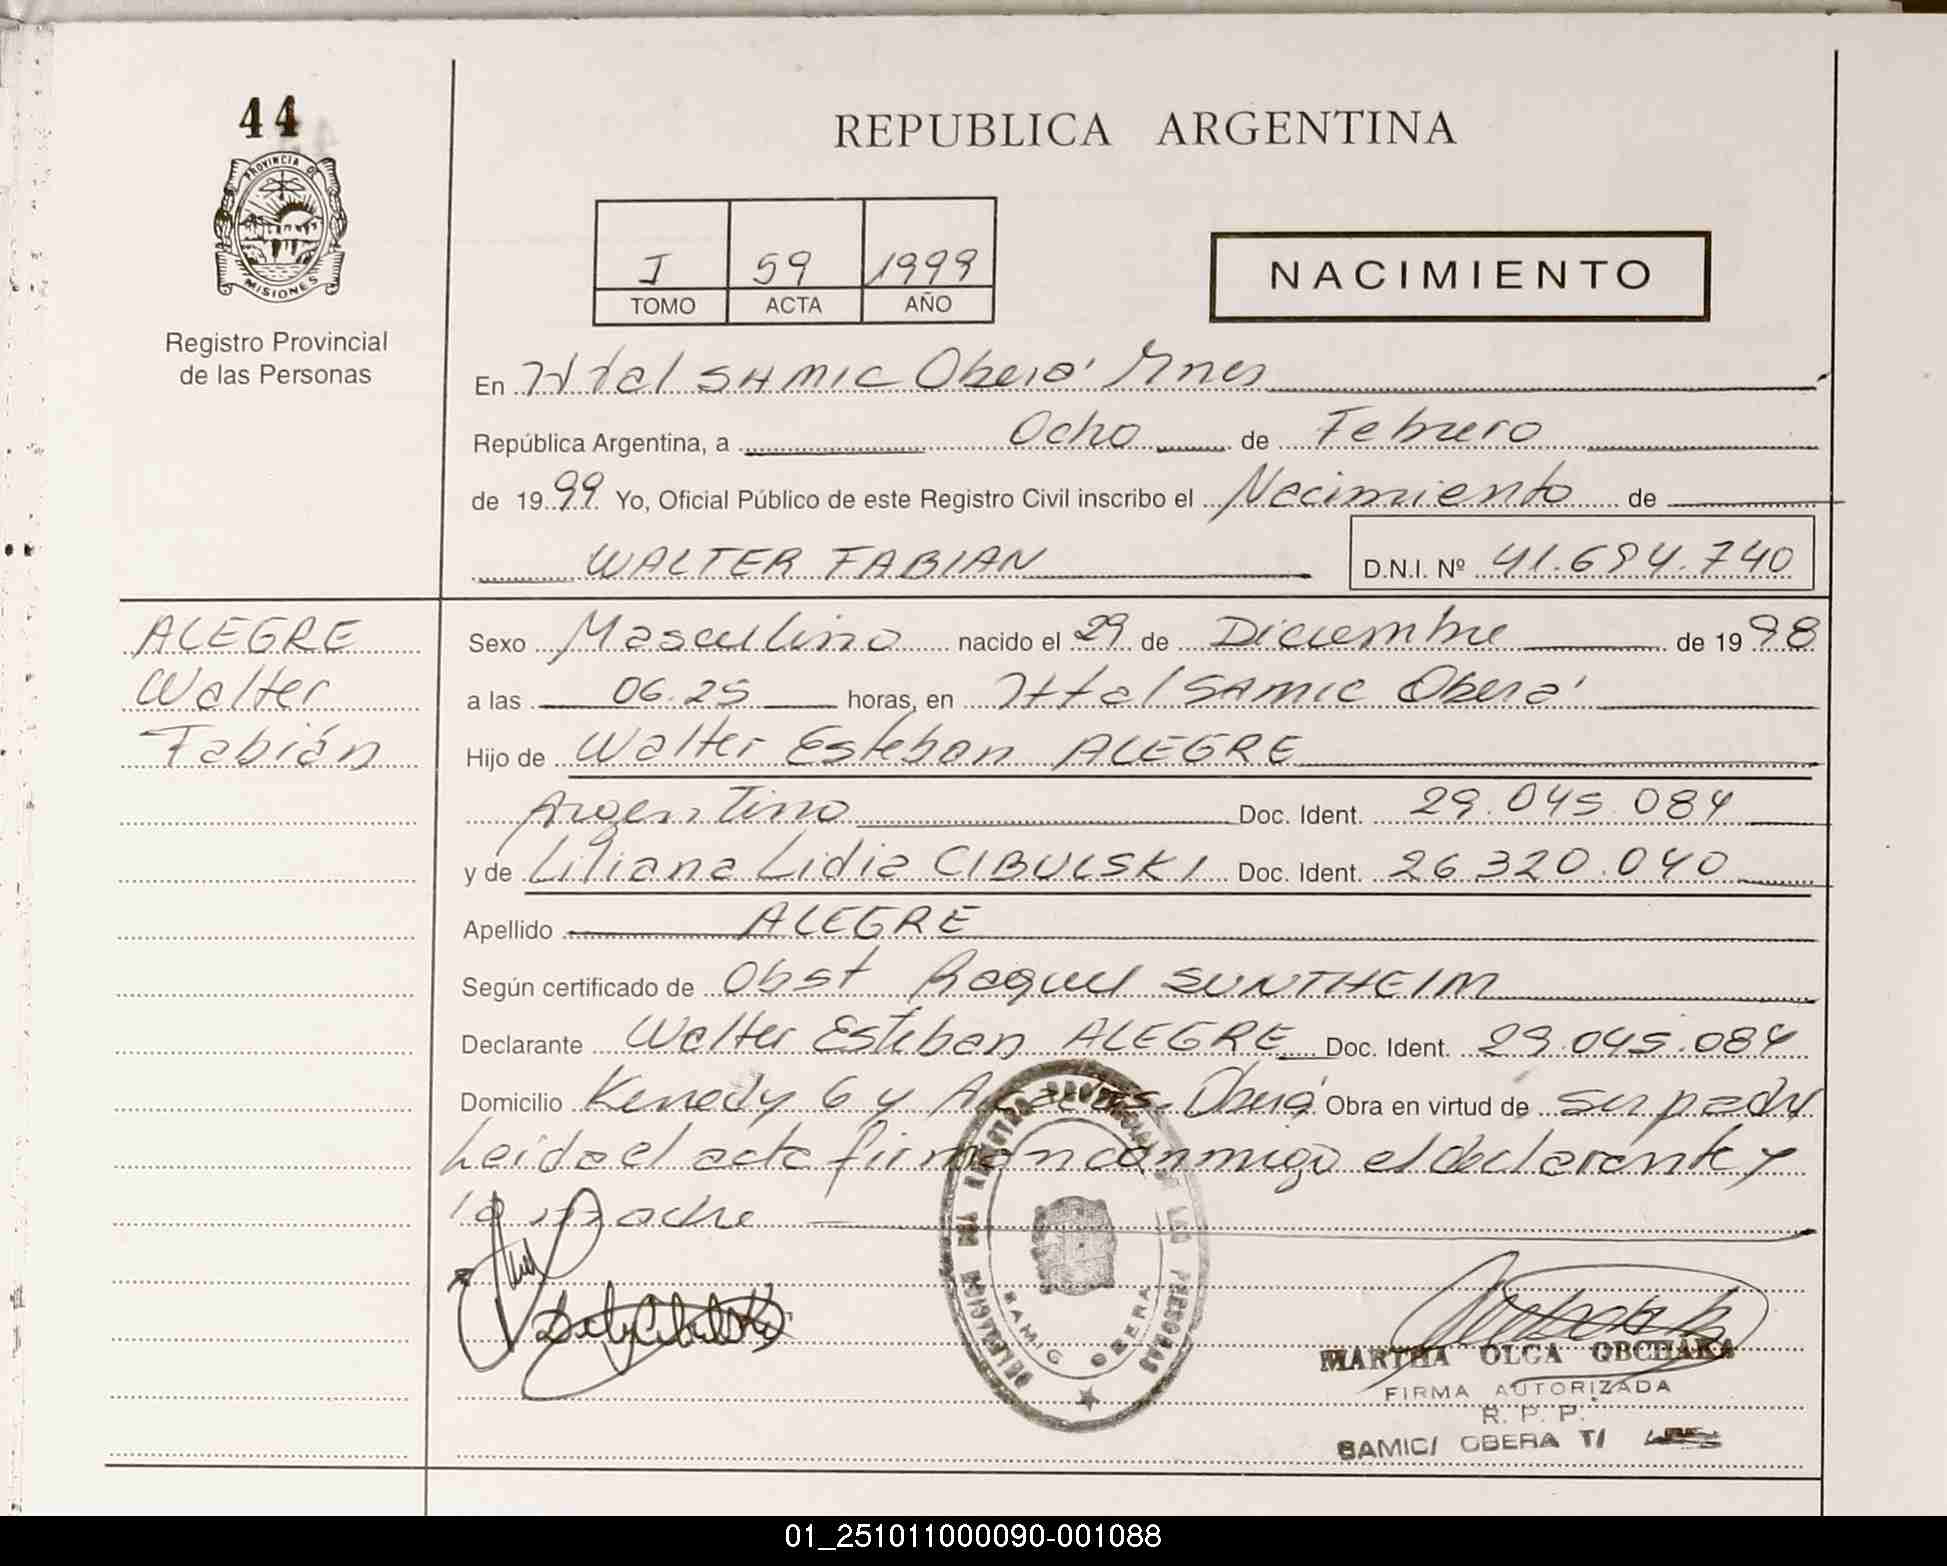 44
PROVINCIA DE
MISIONES
Registro Provincial
de las Personas
REPUBLICA ARGENTINA
I 59 1999
TOMO ACTA AÑO
NACIMIENTO
En Httal SAMIC Oberá Mnes
República Argentina, a Ocho de Febrero
de 1999 Yo, Oficial Público de este Registro Civil inscribo el Nacimiento de
WALTER FABIAN D.N.I. Nº 41.694.740
ALEGRE
Walter
Fabián
Sexo Masculino nacido el 29 de Diciembre de 1998
a las 06.25 horas, en Httal SAMIC Oberá
Hijo de Walter Esteban ALEGRE
Argentino Doc. Ident. 29.045.084
y de Liliana Lidia CIBULSKI Doc. Ident. 26.320.040
Apellido ALEGRE
Según certificado de Obst Raquel SUNTHEIM
Declarante Walter Esteban ALEGRE Doc. Ident. 29.045.084
Domicilio Kenedy 6 y Oberá Obra en virtud de ser padre
Leida el acta firman conmigo el declarante y
la madre
DELEGACION DEL REGISTRO PROVINCIAL DE LAS PERSONAS
SAMIC OBERA
MARTHA OLGA OBCHAKA
FIRMA AUTORIZADA
R. P. P.
SAMIC/ OBERA T/
01_251011000090-001088